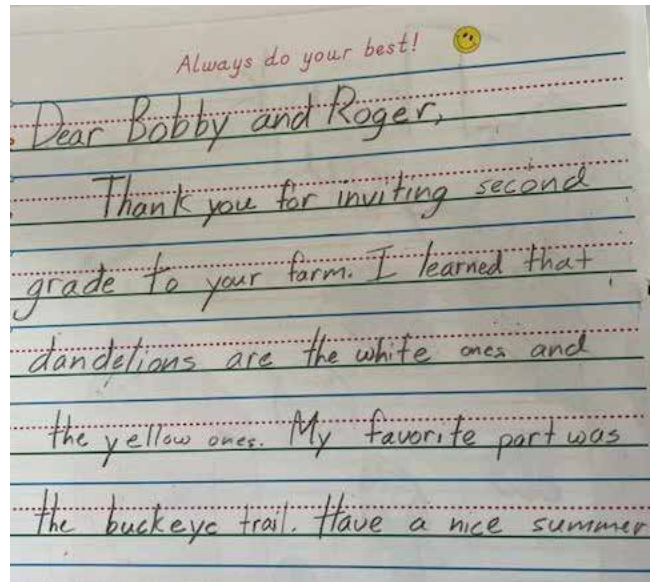 Always do your best!
Dear Bobby and Roger,
Thank you for inviting second
grade to your farm. I learned that
dandelions are the white ones and
the yellow ones. My favorite part was
the buckeye trail. Have a nice summer